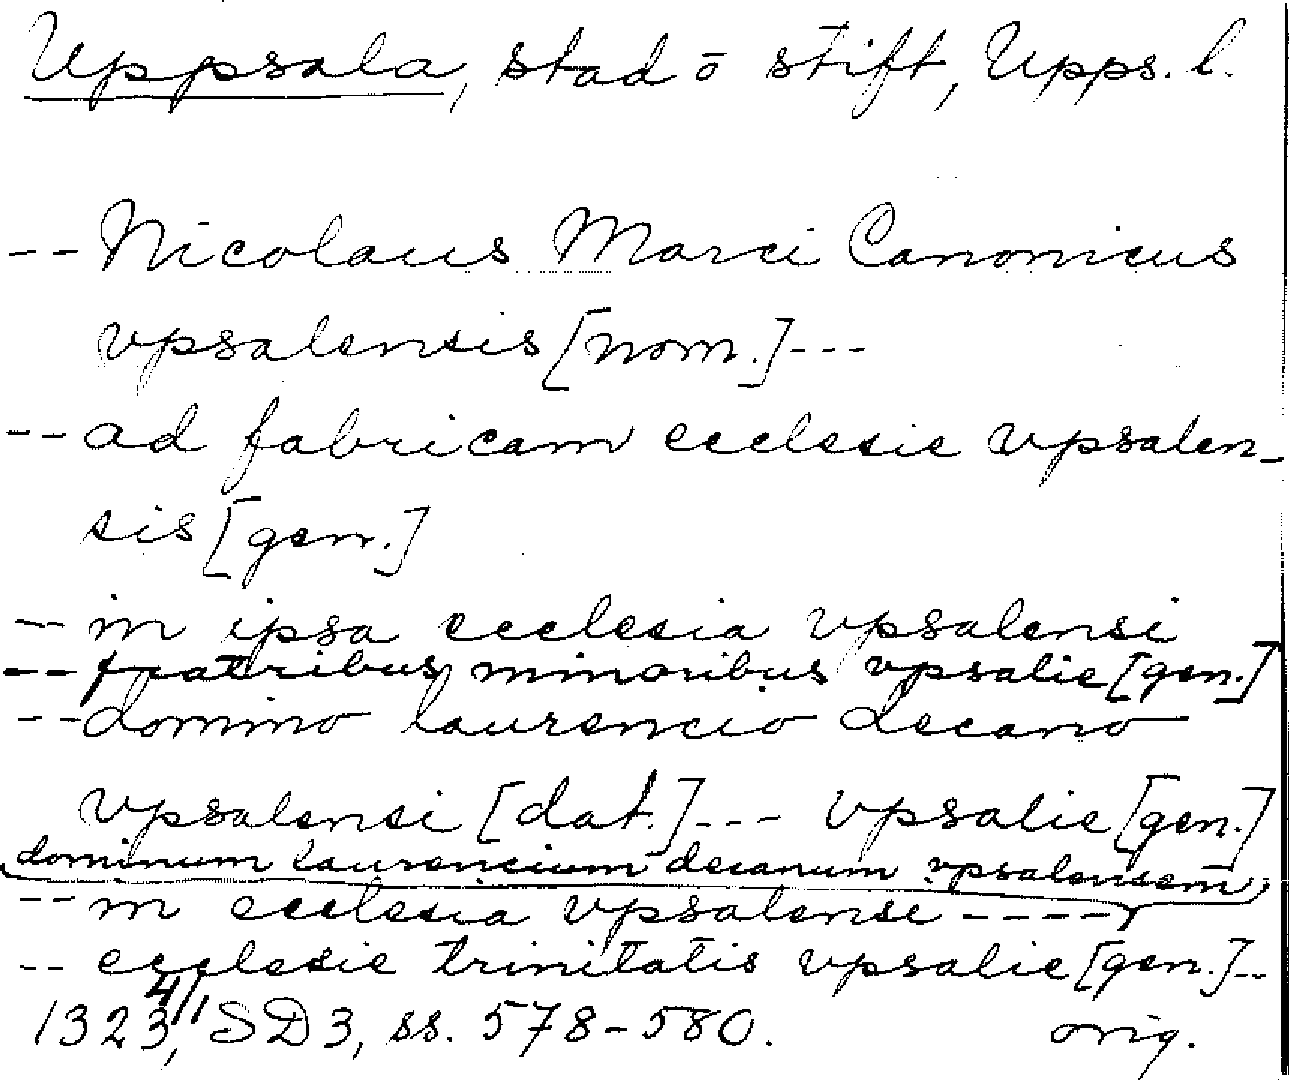 Uppsala, stad o stift, Upps. l.
-- Nicolaus Marci Canonicus
vpsalensis [nom.] ---
-- ad fabricam ecclesie vpsalen-
sis [gen.]
-- in ipsa ecclesia vpsalensi
-- fratribus minoribus vpsalie [gen.]
-- domino laurencio decano
vpsalensi [dat.] --- vpsalie [gen.]
dominum laurencium decanum vpsalensem,
-- in ecclesia vpsalensi ----
-- ecclesie trinitatis vpsalie [gen.] --
1323 4/1, SD 3, ss. 578-580. orig.